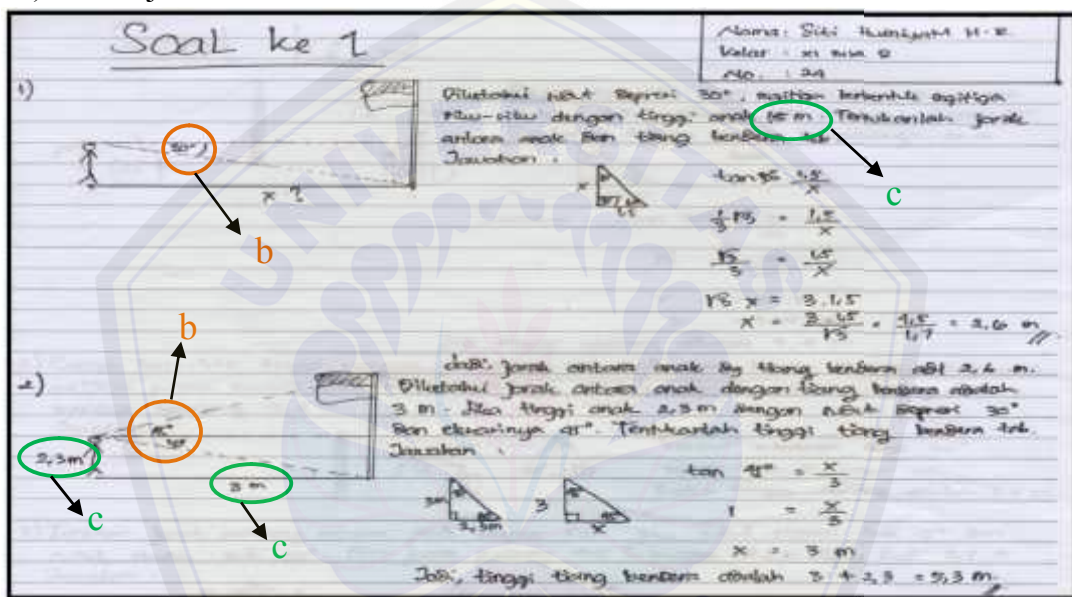 Soal ke 1
Nama : Siti H.R.
Kelas : XI
No. : 24
1)
Diketahui sudut depresi 30°, segitiga berbentuk segitiga
siku-siku dengan tinggi anak 1,5 m. Tentukanlah jarak
antara anak dan tiang bendera tsb
Jawaban :
30°
b
x ?
c
x
1,5
tan 1,5/x
1/3 √3 = 1,5/x
√3/3 = 1,5/x
√3 x = 3.1,5
x = 3.1,5/√3 = 4,5/1,7 = 2,6 m //
Jadi, jarak antara anak dg tiang bendera adl 2,6 m.
2)
Diketahui jarak antara anak dengan tiang bendera adalah
3 m. Jika tinggi anak 2,3 m dengan sudut depresi 30°
dan elevasinya 45°. Tentukanlah tinggi tiang bendera tsb.
Jawaban :
b
45°
30°
2,3 m
c
3 m
c
3m
2,3m
3
45°
x
tan 45° = x/3
1 = x/3
x = 3 m
Jadi, tinggi tiang bendera adalah 3 + 2,3 = 5,3 m. //
UNIVERSITAS